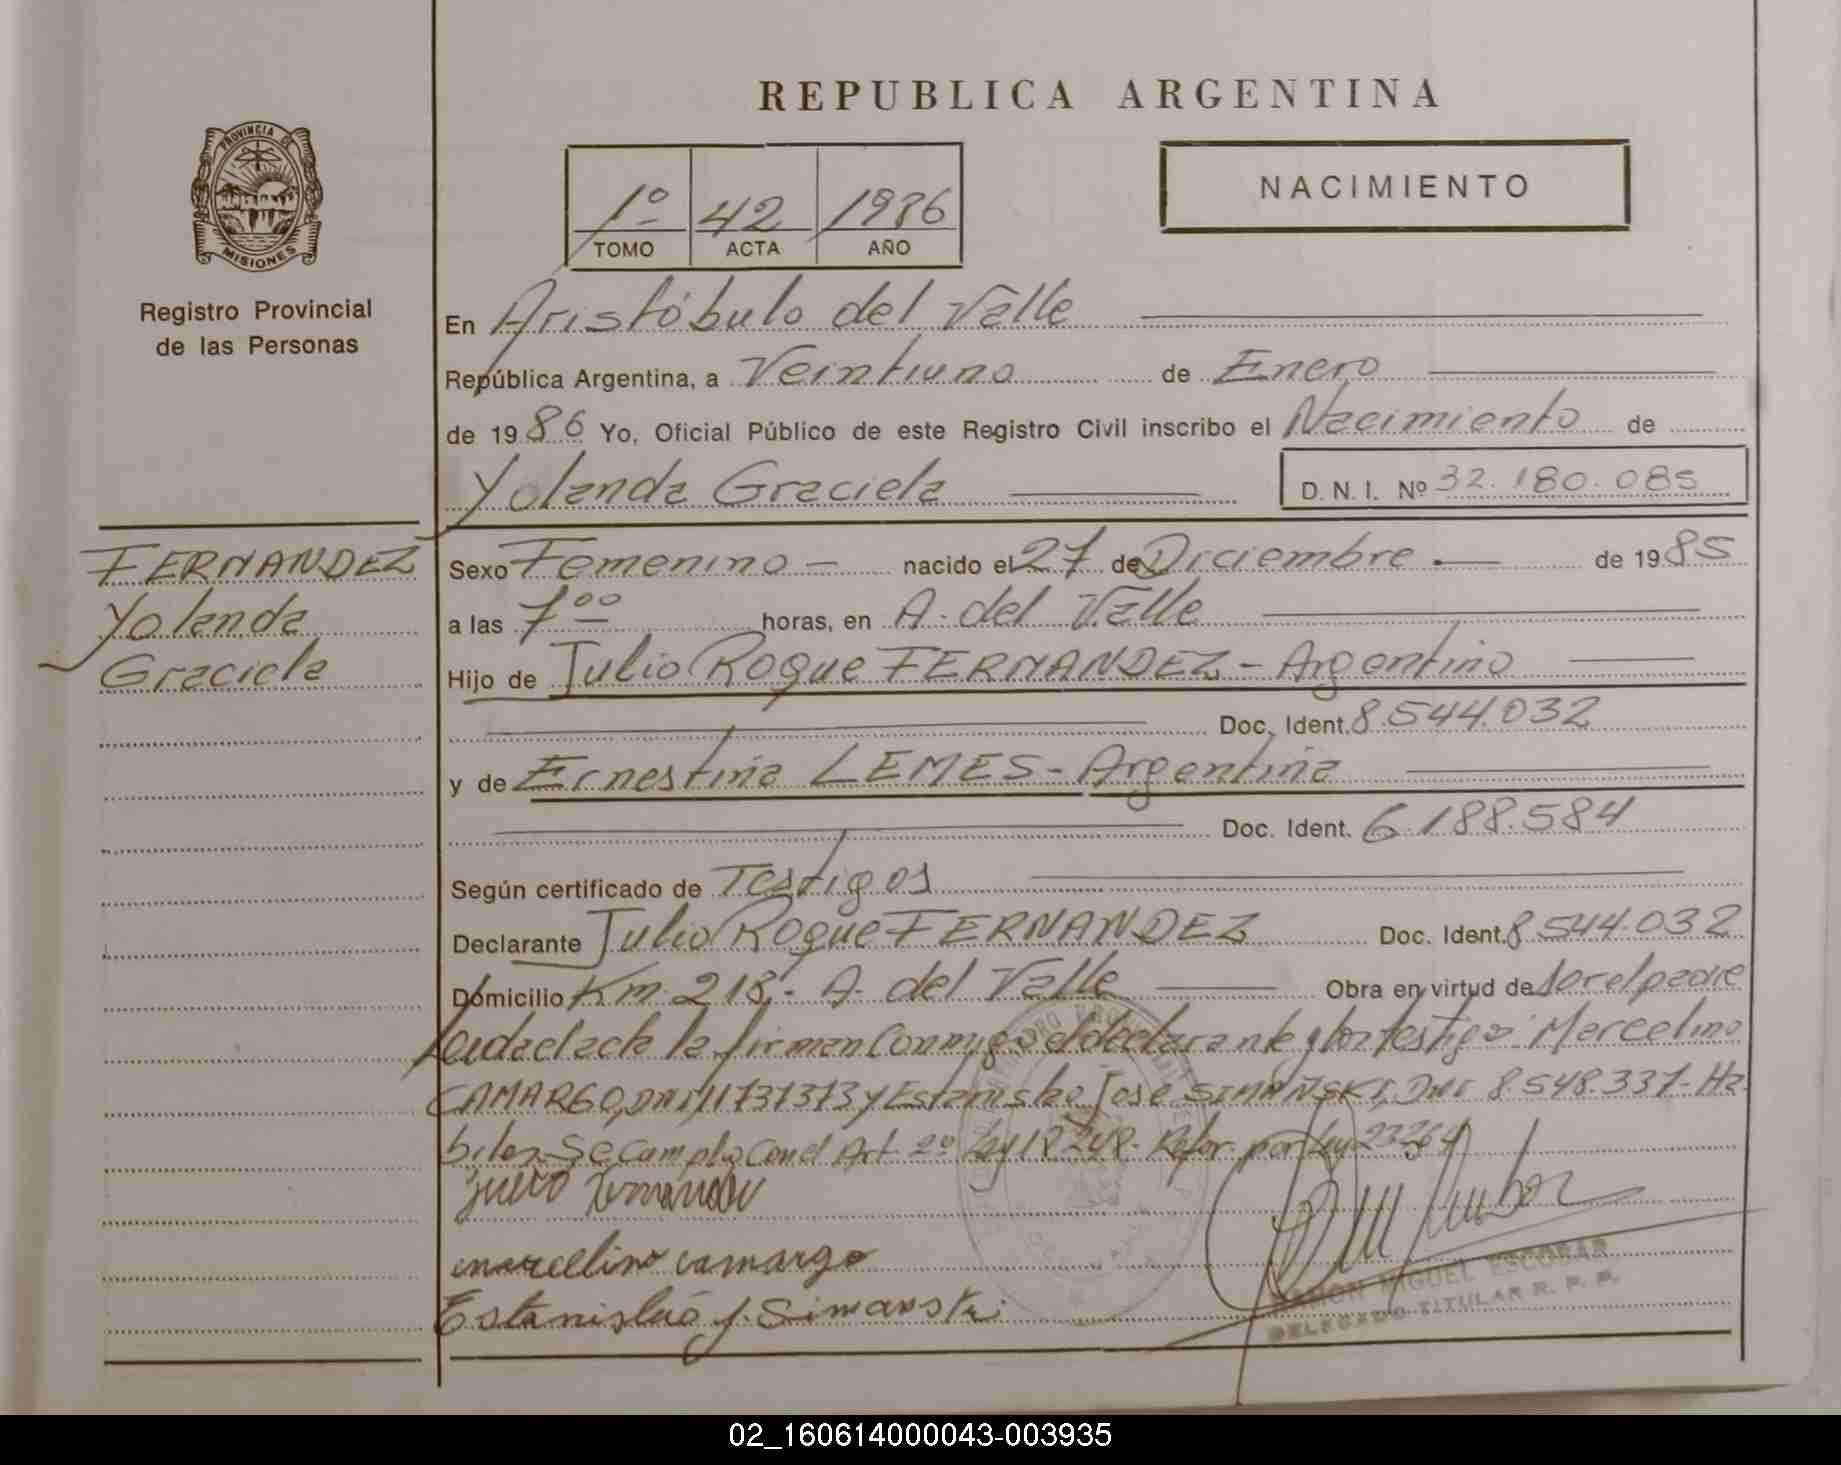 REPUBLICA ARGENTINA
PROVINCIA DE MISIONES
Registro Provincial
de las Personas
1º 42 1986
TOMO ACTA AÑO
NACIMIENTO
En Aristóbulo del Valle
República Argentina, a Veintiuno de Enero
de 1986 Yo, Oficial Público de este Registro Civil inscribo el Nacimiento de
Yolanda Graciela D. N. I. Nº 32.180.085
FERNANDEZ
Yolanda
Graciela
Sexo Femenino nacido el 27 de Diciembre de 1985
a las 7ºº horas, en A. del Valle
Hijo de Julio Roque FERNANDEZ - Argentino
Doc. Ident. 8.544.032
y de Ernestina LEMES - Argentina
Doc. Ident. 6.188.584
Según certificado de Testigos
Declarante Julio Roque FERNANDEZ Doc. Ident. 8.544.032
Domicilio Km. 218, - A. del Valle Obra en virtud de ser el padre
Leida el acta la firman Conmigo el declarante y los testigos Marcelino
CAMARGO, DNI y Estanislao José SIMAÑSKI, DNI 8.548.337 - Há
biles Se cumplió con el Art. 2º Ley 18248 - Refor. por Ley 23264
Julio Fernández
marcelino camargo
Estanislao J. Simanski
RAMON MIGUEL ESCOBAR
DELEGADO TITULAR R. P. P.
02_160614000043-003935